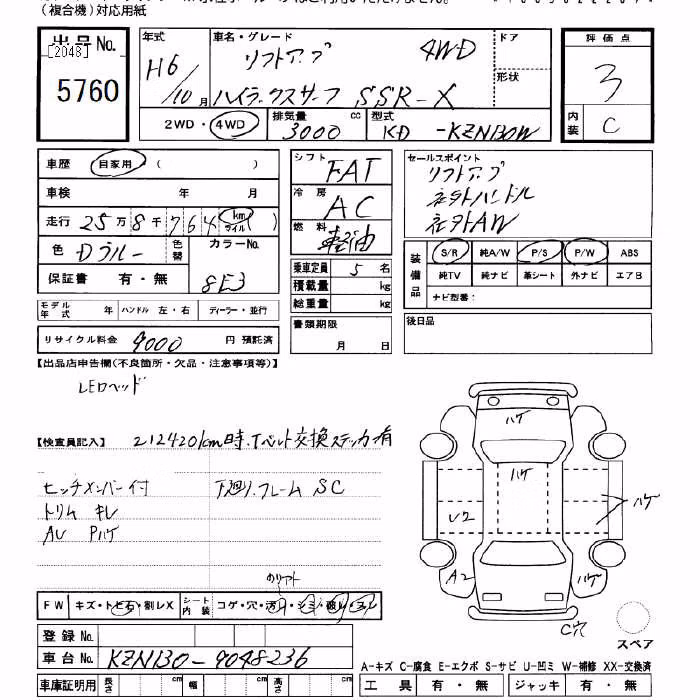 (複合機)対応用紙
出品No.
[2048]
5760
年式 車名・グレード ドア
H6 リフトアップ 4WD
10月 ハイラックスサーフ SSR-X 形状
2WD・4WD 排気量 3000 cc 型式 KD -KZN130W
評価点
3
内装 C
車歴 自家用 ( )
車検 年 月
走行 25万8千764 km マイル
色 Dブルー 色替 カラーNo. 8E3
保証書 有・無
モデル年式 年 ハンドル 左・右 ディーラー・並行
リサイクル料金 9000 円 預託済
シフト FAT
冷房 AC
燃料 軽油
乗車定員 5 名
積載量 kg
総重量 kg
書類期限
月 日
セールスポイント
リフトアップ
社外ハンドル
社外AW
装備品 S/R 純A/W P/S P/W ABS
純TV 純ナビ 革シート 外ナビ エアB
ナビ型番:
後日品
【出品店申告欄(不良箇所・欠品・注意事項等)】
LEDヘッド
【検査員記入】 212420km時.Tベルト交換ステッカ有
ヒッチメンバー付 下廻り.フレーム SC
トリム キレ
AW Pハゲ
ハゲ
ハゲ
ハゲ
U2
A2
ハゲ
C穴
スペア
FW キズ・トビ石・割レX シート内装 コゲ・穴・汚レ・シミ・破レ・スレ
登録No.
車台No. KZN130-9048236
A-キズ C-腐食 E-エクボ S-サビ U-凹ミ W-補修 XX-交換済
車庫証明用 長さ cm 幅 cm 高さ cm
工具 有・無 ジャッキ 有・無